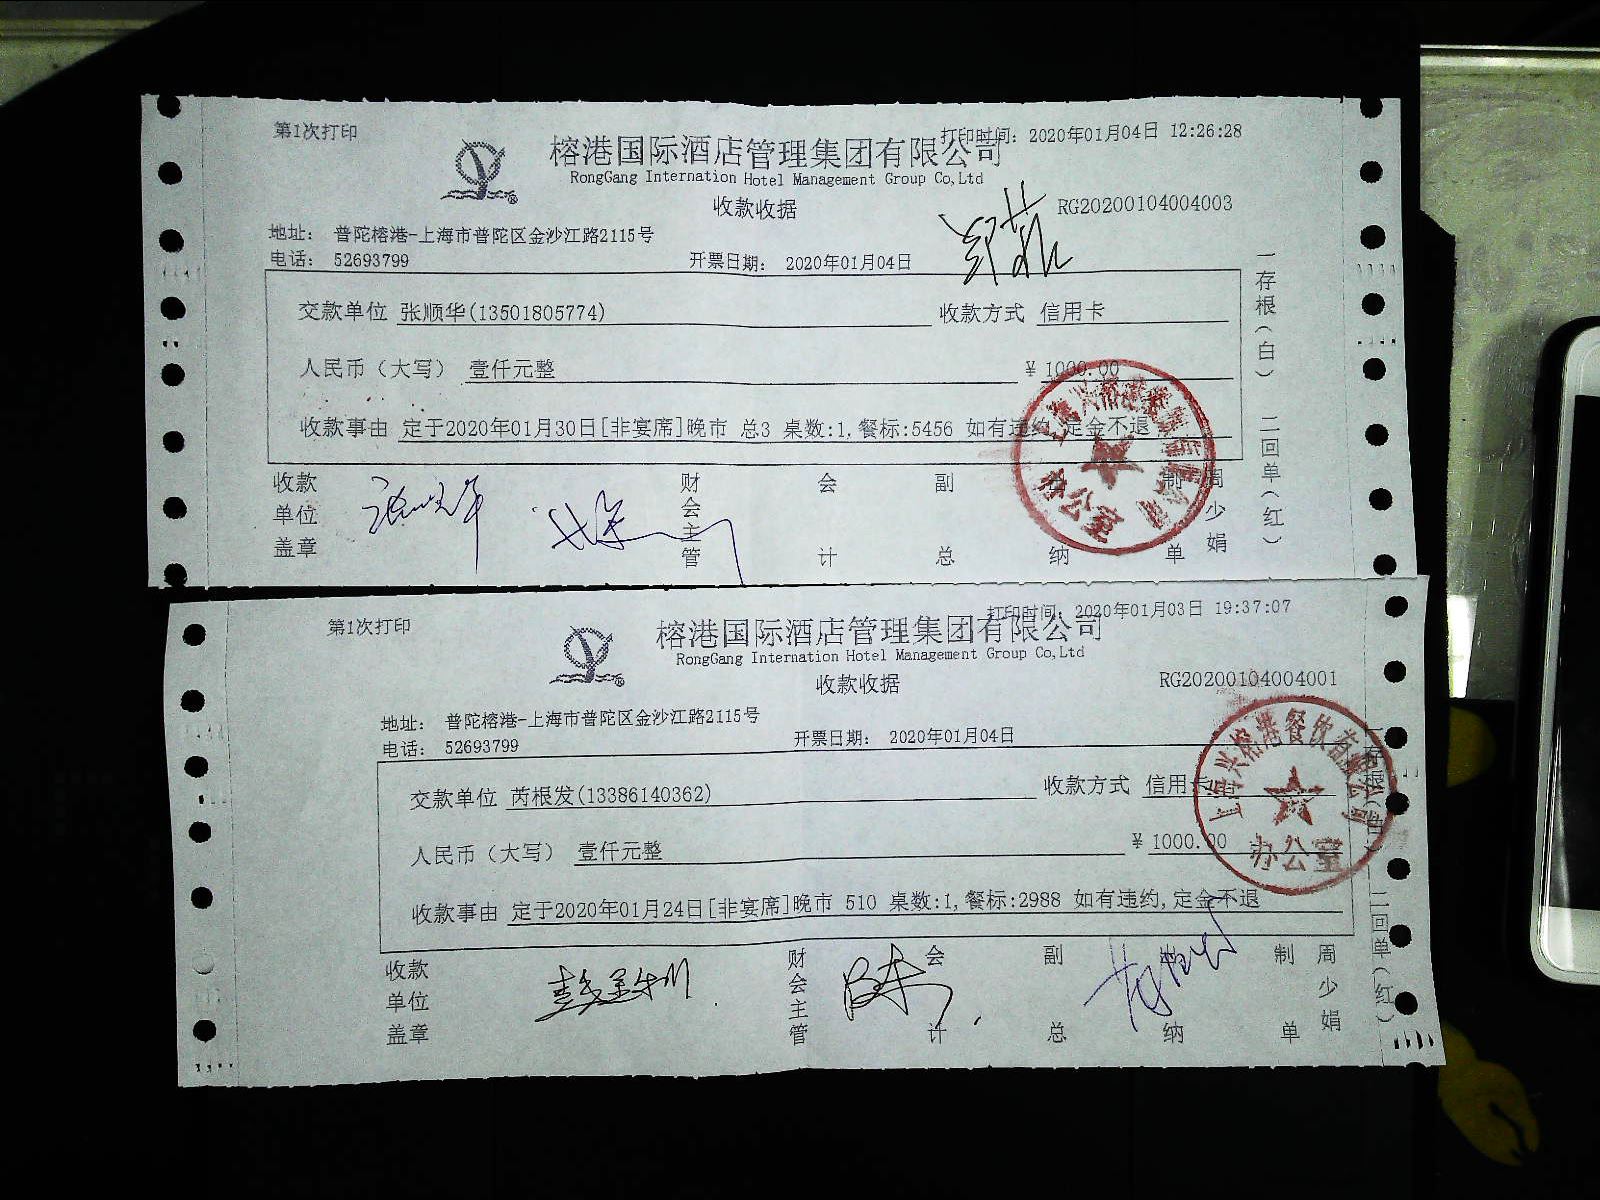 第1次打印
打印时间: 2020年01月04日 12:26:28
榕港国际酒店管理集团有限公司
RongGang Internation Hotel Management Group Co,Ltd
收款收据
RG20200104004003
地址: 普陀榕港-上海市普陀区金沙江路2115号
电话: 52693799
开票日期: 2020年01月04日
交款单位 张顺华(13501805774) 收款方式 信用卡
人民币（大写） 壹仟元整 ¥ 1000.00
收款事由 定于2020年01月30日[非宴席]晚市 总3 桌数:1,餐标:5456 如有违约,定金不退
一存根(白) 二回单(红)
收款单位盖章 财会主管 会计 副总 出纳 制单 周少娟
办公室
第1次打印
打印时间: 2020年01月03日 19:37:07
榕港国际酒店管理集团有限公司
RongGang Internation Hotel Management Group Co,Ltd
收款收据
RG20200104004001
地址: 普陀榕港-上海市普陀区金沙江路2115号
电话: 52693799
开票日期: 2020年01月04日
交款单位 芮根发(13386140362) 收款方式 信用卡
人民币（大写） 壹仟元整 ¥ 1000.00
收款事由 定于2020年01月24日[非宴席]晚市 510 桌数:1,餐标:2988 如有违约,定金不退
一存根(白) 二回单(红)
收款单位盖章 财会主管 会计 副总 出纳 制单 周少娟
上海兴榕港餐饮有限公司
办公室